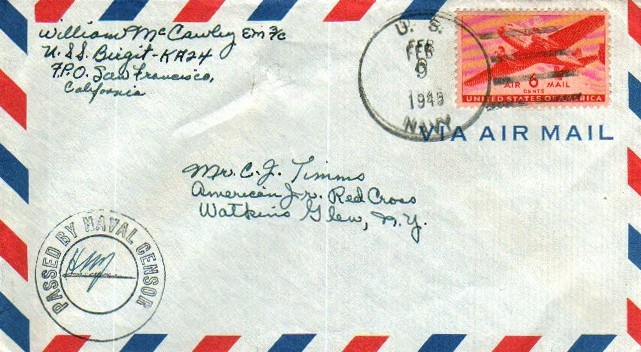 William McCawley EM 3/c
U.S.S. Birgit - KA24
F.P.O. San Francisco,
California
U. S.
FEB
9
1945
NAVY
AIR 6 MAIL
CENTS
UNITED STATES OF AMERICA
VIA AIR MAIL
Mr. C. J. Timms
American Jr. Red Cross
Watkins Glen, N.Y.
PASSED BY NAVAL CENSOR